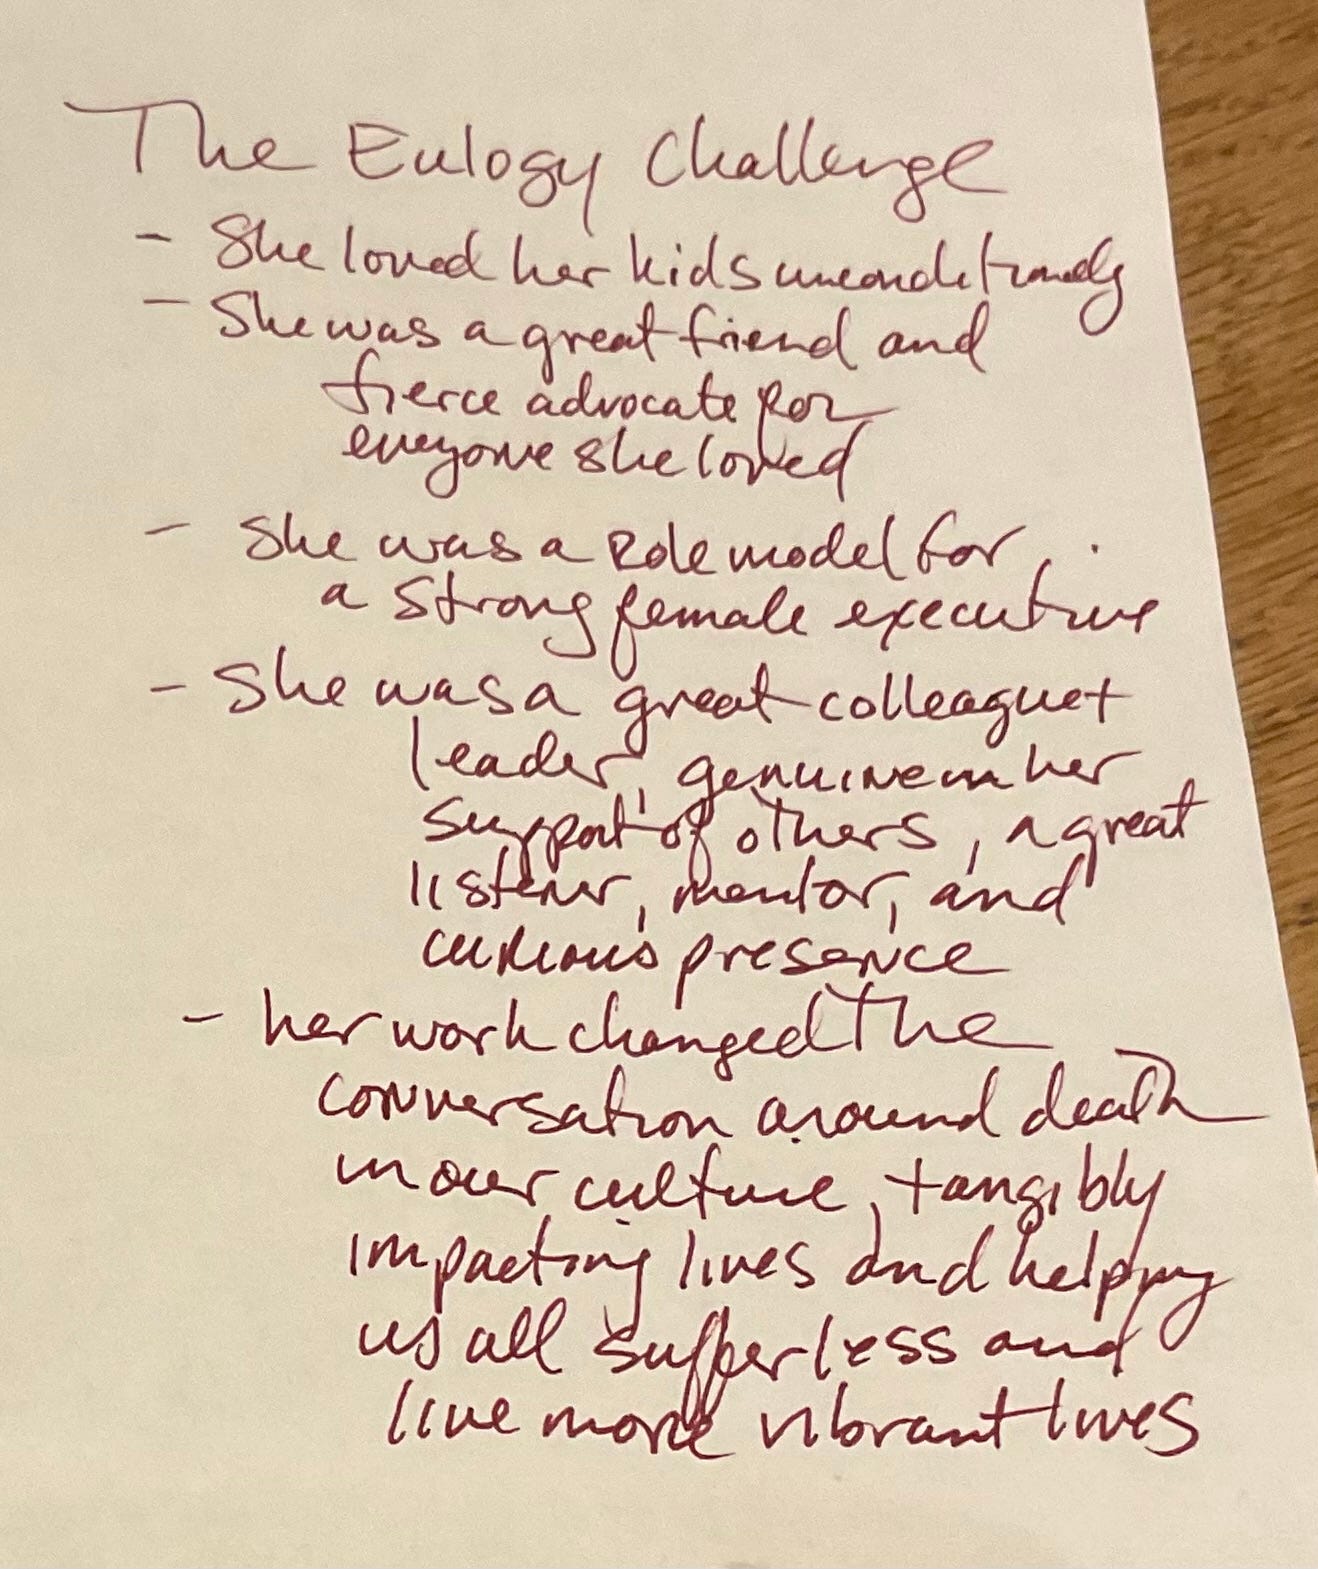 The Eulogy Challenge
- She loved her kids unconditionally
- She was a great friend and
fierce advocate for
everyone she loved
- She was a Role model for
a strong female executive
- She was a great colleague +
leader, genuine in her
support of others, a great
listener, mentor, and
curious presence
- her work changed the
conversation around death
in our culture, tangibly
impacting lives and helping
us all suffer less and
live more vibrant lives